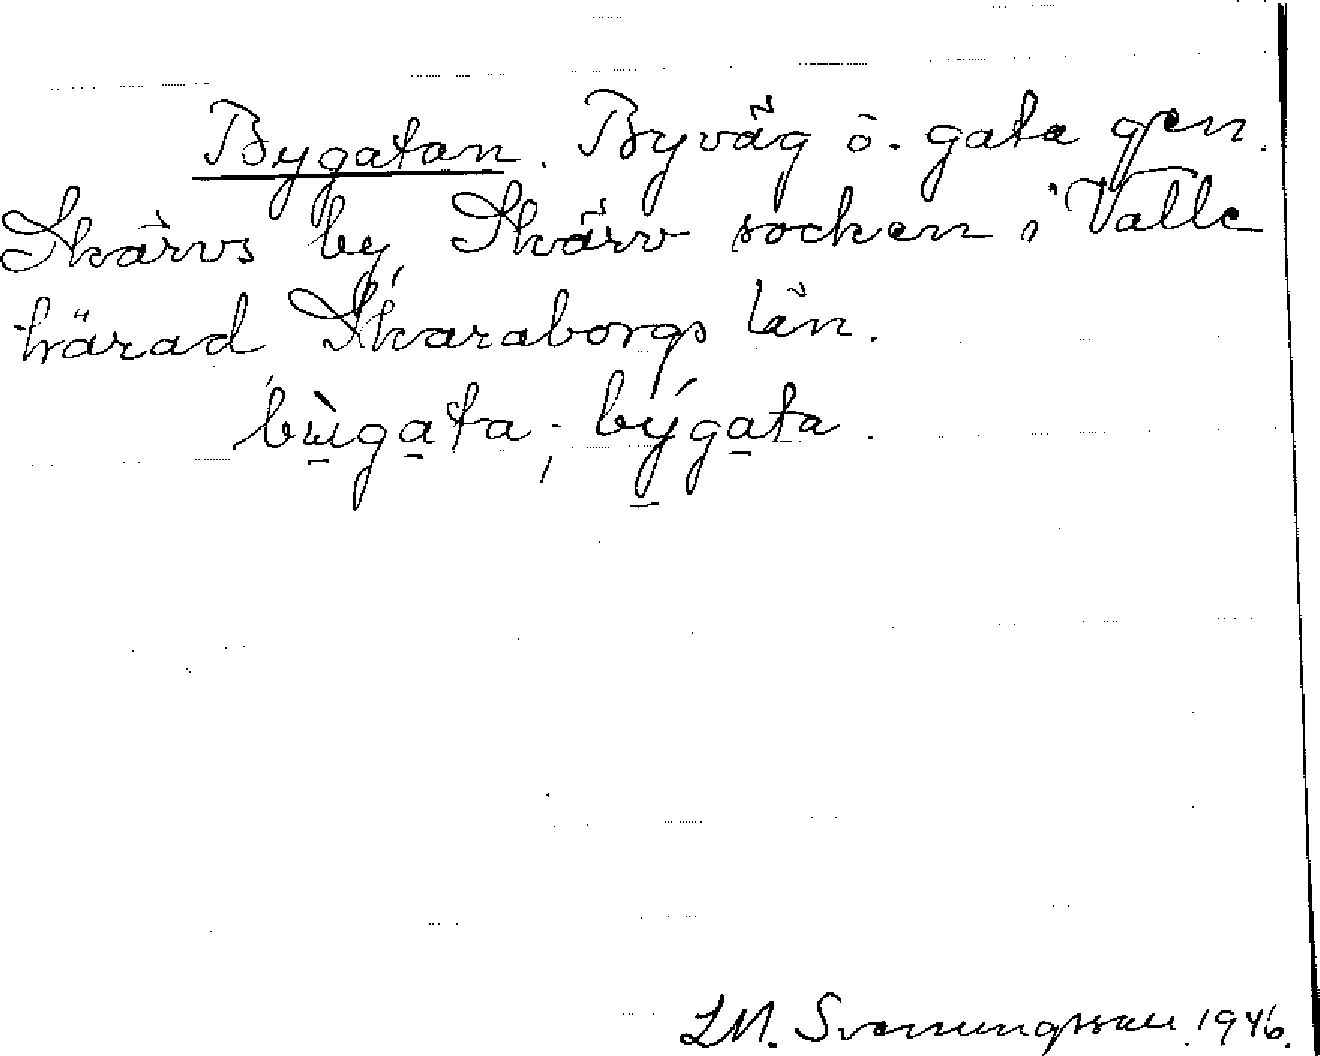 Bygatan. Byväg o. gata gen.
Skärvs by, Skärv socken i Valle
härad Skaraborgs län.
bùgata; býgata.
LM. Svenungsson. 1946.